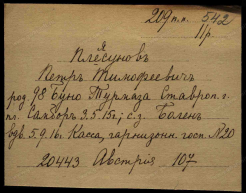 209 п.п. 542
Пр.
Плѣсуновъ
Я
Петръ Тимофеевичъ
род. 98 Турмаза Ставроп. г.
пл. Самборъ 3.5.15 г.; с.з. Болен
вдв. 5.9.16. Касса, гарнизонн. госп. N20
20443 Австрия 107